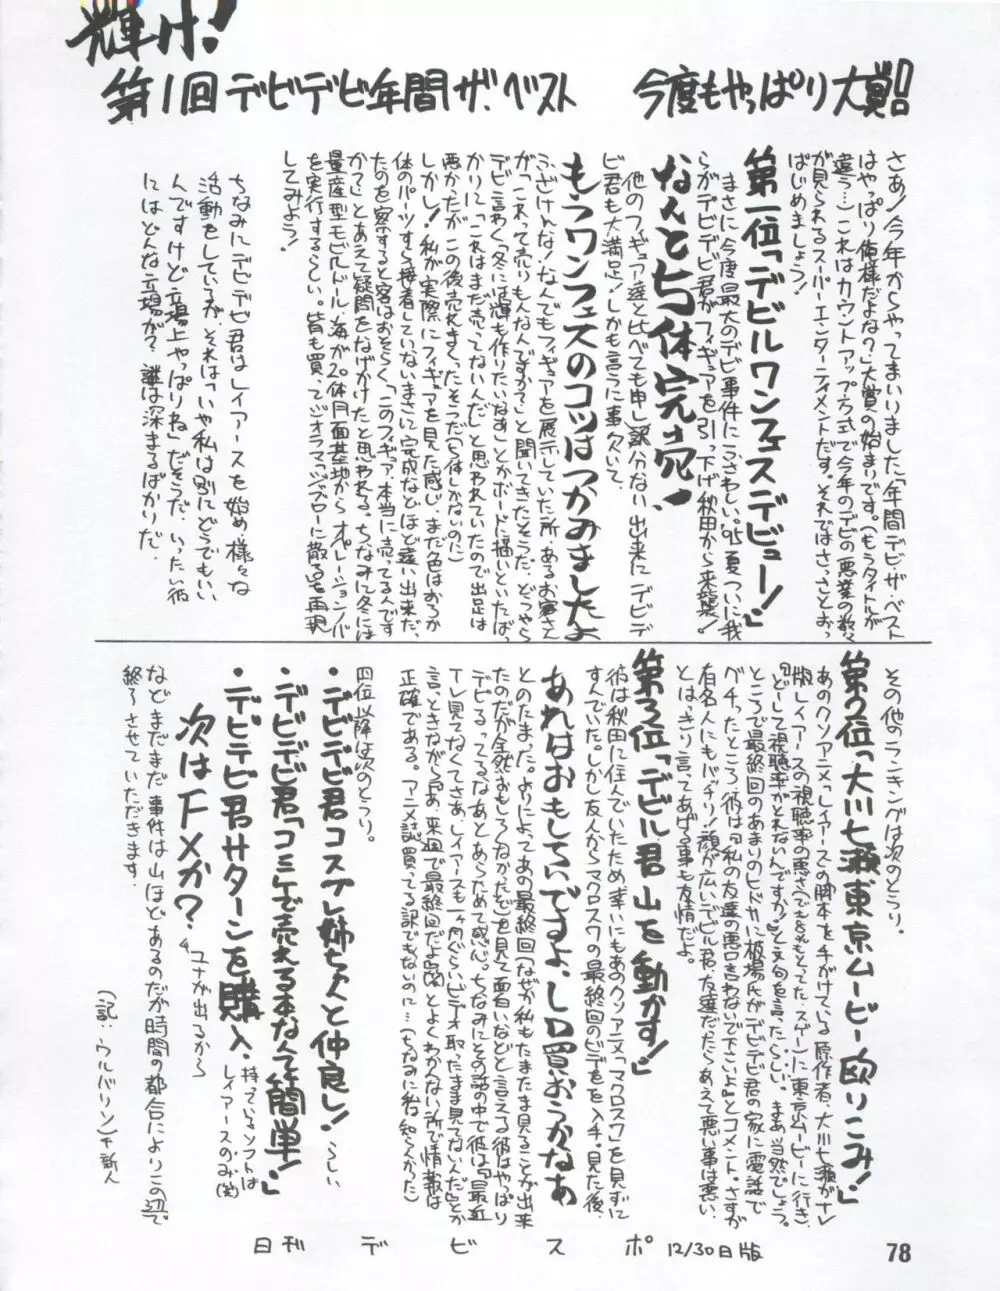 輝け!
第1回デビデビ年間ザ・ベスト 今度もやっぱり大賞!!
さあ!今年からやってまいりました「年間デビザ・ベスト
はやっぱり俺様だよな?」大賞の始まりです。(もうタイトルが
違う…)これはカウントアップ方式で今年のデビの悪業の数々
が見られるスーパーエンターティメントだす。それではさっさとおっ
ぱじめましょう!
第一位「デビルワンフェスデビュー!」
まさに今度最大のデビ事件にふさわしい。'95夏ついに我
らがデビデビ君がフィギュアを引っ下げ秋田から来襲!
なんと5体完売!
他のフィギュア達と比べても申し訳分ない出来にデビデ
ビ君も大満足!しかも言うに事欠いて、
もうワンフェスのコツはつかみましたよ
ふざけんな!なんでもフィギュアを展示していた所、あるお客さん
が「これって売りもんなんですか?」と聞いてきたそうだ。どうやら
デビ言わく「冬には輝も作りたいなす」とかボードに描いといたば
かりに「これはまだ売ってないんだ」と思われていたので出足は
悪かったがこの後売れまくったそうだ(5体しかないのに)
しかし!私が実際にフィギュアを見た感じ、まだ色はおろか
体のパーツすら接着していないまさに完成などほど遠い出来だっ
たのを察すると客はおそらく「このフィギュア本当に売ってるんです
か?」とあえて疑問をなげかけたと思われる。ちなみに冬には
量産型モビルドール海が20体月面基地からオペレーションバ
を実行するらしい。皆も買ってジオラマ「ジャブローに散る」を再現
してみよう!
ちなみにデビデビ君はレイアースを始め様々な
活動をしているが、それは「いや私は別にどうでもいい
んですけど立場上やっぱりね」だそうだ。いったい彼
にはどんな立場が?謎は深まるばかりだ。
その他のランキングは次のとうり。
第2位「大川七瀬東京ムービー殴りこみ!」
あのクソアニメ「レイアース」の脚本を手がけている原作者、大川七瀬がテレ
版レイアースの視聴率の悪さ(でも6%もとってた。スゲー)に東京ムービーに行き、
「どーして視聴率がとれないんですか!」と文句を言ったらしい。まあ当然でしょう。
ところで最終回のあまりのヒドサに板場氏がデビデビ君の家に電話で
グチったところ、彼は「私の友達の悪口言わないで下さいよ」とコメント。さすが
有名人にもバッチリ顔が広いデビル君。友達だったらあえて悪い事は悪い、
とはっきり言ってあげる事も友情だよ。
第3位「デビル君山を動かす!」
彼は秋田に住んでいたため幸いにもあのクソアニメ「マクロス7」を見ずに
すんでいた。しかし友人からマクロス7の最終回のビデオを入手し見た後、
あれはおもしろいですよ。LD買おうかなあ
とのたまった。よりによってあの最終回(なぜか私もたまたま見ることが出来
たのだが全然おもしろくねかった)を見て面白いなどと言える彼はやっぱり
デビるってるなあとあらためて感心。ちなみにその話の中で彼は「最近
テレ見てなくてさあ、レイアースも一ヶ月ぐらいビデオ取ったまま見てないんだ」とか
言っときながら「あ、来週で最終回だよ(笑)」とよくわかんない所で情報は
正確である。アニメ誌買ってる訳でもないのに…(ちなみに私は知らんかった)
四位以降は次のとうり。
・デビデビ君コスプレ姉ちゃんと仲良し!らしい
・デビデビ君「コミケで売れる本なんて簡単!」
・デビデビ君サターンを購入。持っているソフトはレイアースのみ(笑)
次はFXか?
↑ユナが出るから
などまだまだ事件は山ほどあるのだが時間の都合によりこの辺で
終らさせていただきます。
(記:ウルバリン)千新人
日刊デビスポ 12/30日版
78